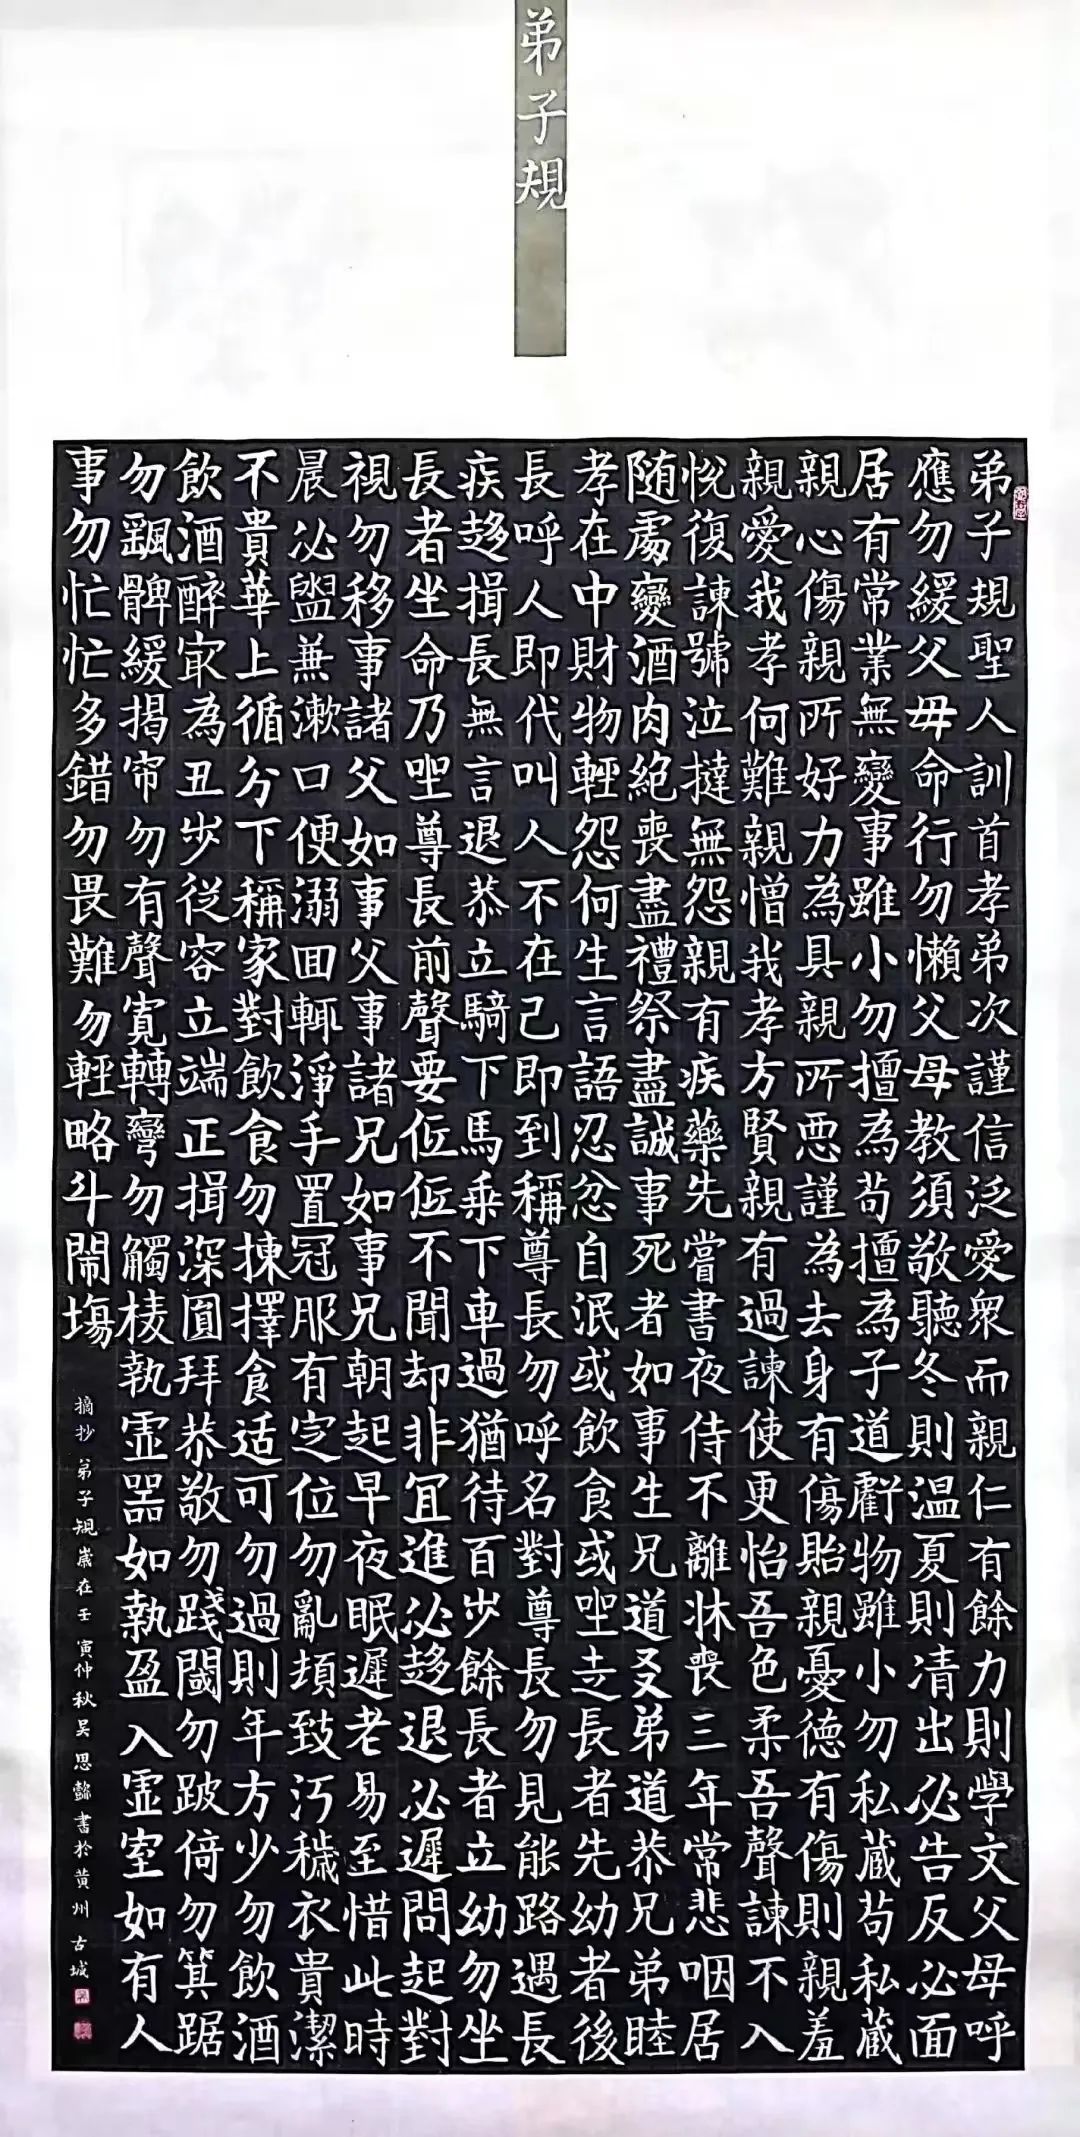 弟子規
弟子規聖人訓首孝弟次謹信泛愛眾而親仁有餘力則學文父母呼
應勿緩父母命行勿懶父母教須敬聽冬則溫夏則凊出必告反必面
居有常業無變事雖小勿擅為苟擅為子道虧物雖小勿私藏苟私藏
親心傷親所好力為具親所惡謹為去身有傷貽親憂德有傷則親羞
親愛我孝何難親憎我孝方賢親有過諫使更怡吾色柔吾聲諫不入
悅復諫號泣撻無怨親有疾藥先嘗書夜侍不離牀喪三年常悲咽居
随處變酒肉絕喪盡禮祭盡誠事死者如事生兄道友弟道恭兄弟睦
孝在中財物輕怨何生言語忍忿自泯或飲食或坐走長者先幼者後
長呼人即代叫人不在己即到稱尊長勿呼名對尊長勿見能路遇長
疾趨揖長無言退恭立騎下馬乘下車過猶待百步餘長者立幼勿坐
長者坐命乃坐尊長前聲要低低不聞却非宜進必趨退必遲問起對
視勿移事諸父如事父事諸兄如事兄朝起早夜眠遲老易至惜此時
晨必盥兼漱口便溺回輒淨手置冠服有定位勿亂頓致污穢衣貴潔
不貴華上循分下稱家對飲食勿揀擇食适可勿過則年方少勿飲酒
飲酒醉最為丑步從容立端正揖深圓拜恭敬勿踐閾勿跛倚勿箕踞
勿颻髀緩揭帘勿有聲寬轉彎勿觸棱執虛器如執盈入虛室如有人
事勿忙忙多錯勿畏難勿輕略斗鬧塲
摘抄弟子規歲在壬寅仲秋吴思懿書於黃州古城